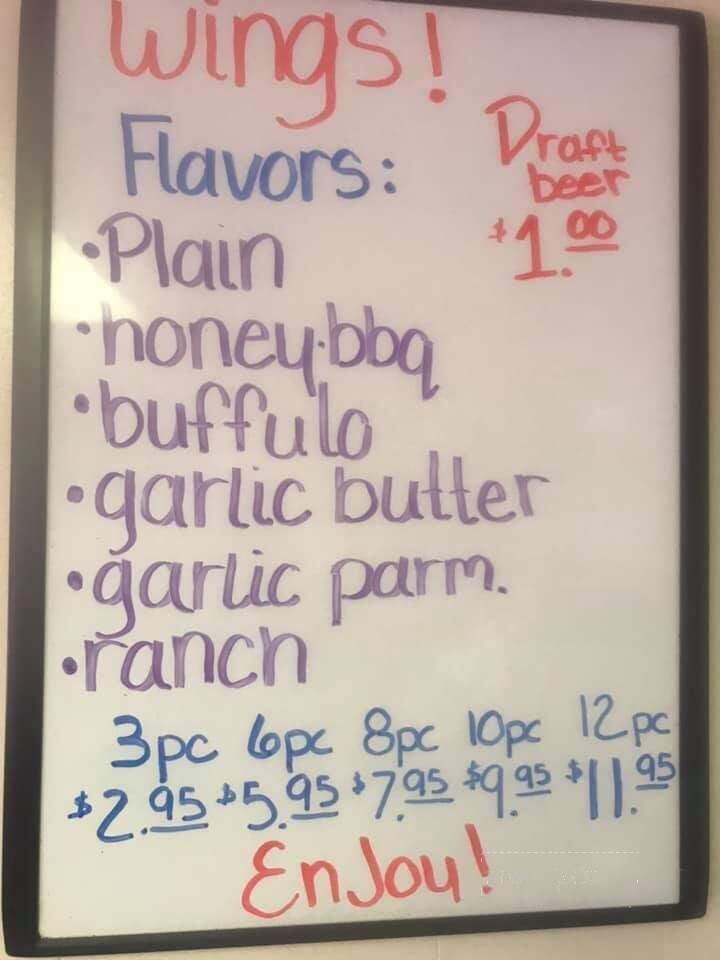 Wings!
Flavors:
Draft
beer
$1.00
•Plain
•honey•bbq
•buffulo
•garlic butter
•garlic parm.
•ranch
3pc 6pc 8pc 10pc 12pc
$2.95 $5.95 $7.95 $9.95 $11.95
EnJoy!